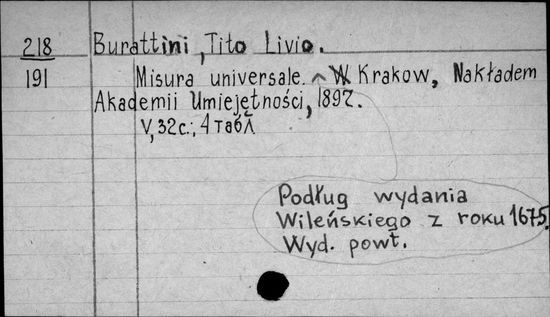 218
191
Burattini, Tito Livio.
Misura universale. W Krakow, Nakładem
Akademii Umiejętności, 1897.
V, 32c.; 4 табл
Podług wydania
Wileńskiego z roku 1675.
Wyd. powt.